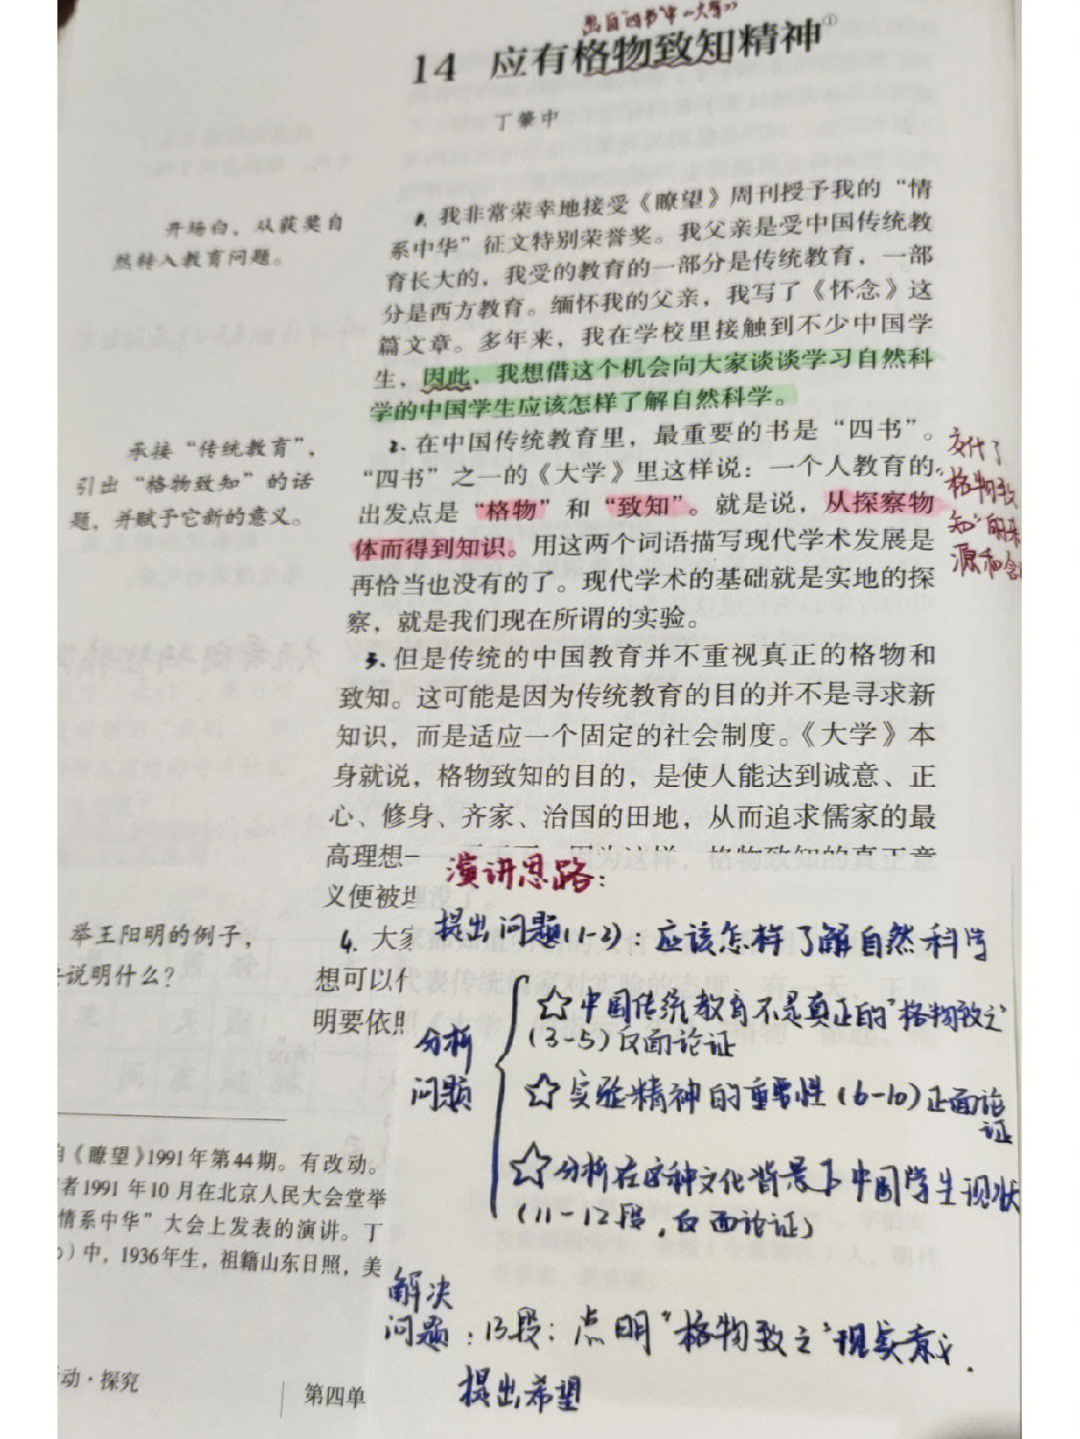 出自“四书”中《大学》
14 应有格物致知精神①
丁肇中
开场白，从获奖自
然转入教育问题。
1. 我非常荣幸地接受《瞭望》周刊授予我的“情
系中华”征文特别荣誉奖。我父亲是受中国传统教
育长大的，我受的教育的一部分是传统教育，一部
分是西方教育。缅怀我的父亲，我写了《怀念》这
篇文章。多年来，我在学校里接触到不少中国学
生，因此，我想借这个机会向大家谈谈学习自然科
学的中国学生应该怎样了解自然科学。
承接“传统教育”，
引出“格物致知”的话
题，并赋予它新的意义。
2. 在中国传统教育里，最重要的书是“四书”。
“四书”之一的《大学》里这样说：一个人教育的
出发点是“格物”和“致知”。就是说，从探察物
体而得到知识。用这两个词语描写现代学术发展是
再恰当也没有的了。现代学术的基础就是实地的探
察，就是我们现在所谓的实验。
交代了
格物致
知”的来
源和含
3. 但是传统的中国教育并不重视真正的格物和
致知。这可能是因为传统教育的目的并不是寻求新
知识，而是适应一个固定的社会制度。《大学》本
身就说，格物致知的目的，是使人能达到诚意、正
心、修身、齐家、治国的田地，从而追求儒家的最
高理想
义便被埋
举王阳明的例子，
说明什么？
4. 大家
想可以代
明要依照
演讲思路：
提出问题(1-2)：应该怎样了解自然科学
分析
问题
☆中国传统教育不是真正的“格物致之”
(3-5)反面论证
☆实验精神的重要性(6-10)正面论
证
☆分析在这种文化背景下中国学生现状
(11-12段，反面论证)
解决
问题：13段：点明“格物致之”现实意义.
提出希望
自《瞭望》1991年第44期。有改动。
者1991年10月在北京人民大会堂举
情系中华”大会上发表的演讲。丁
）中，1936年生，祖籍山东日照，美
动·探究
第四单